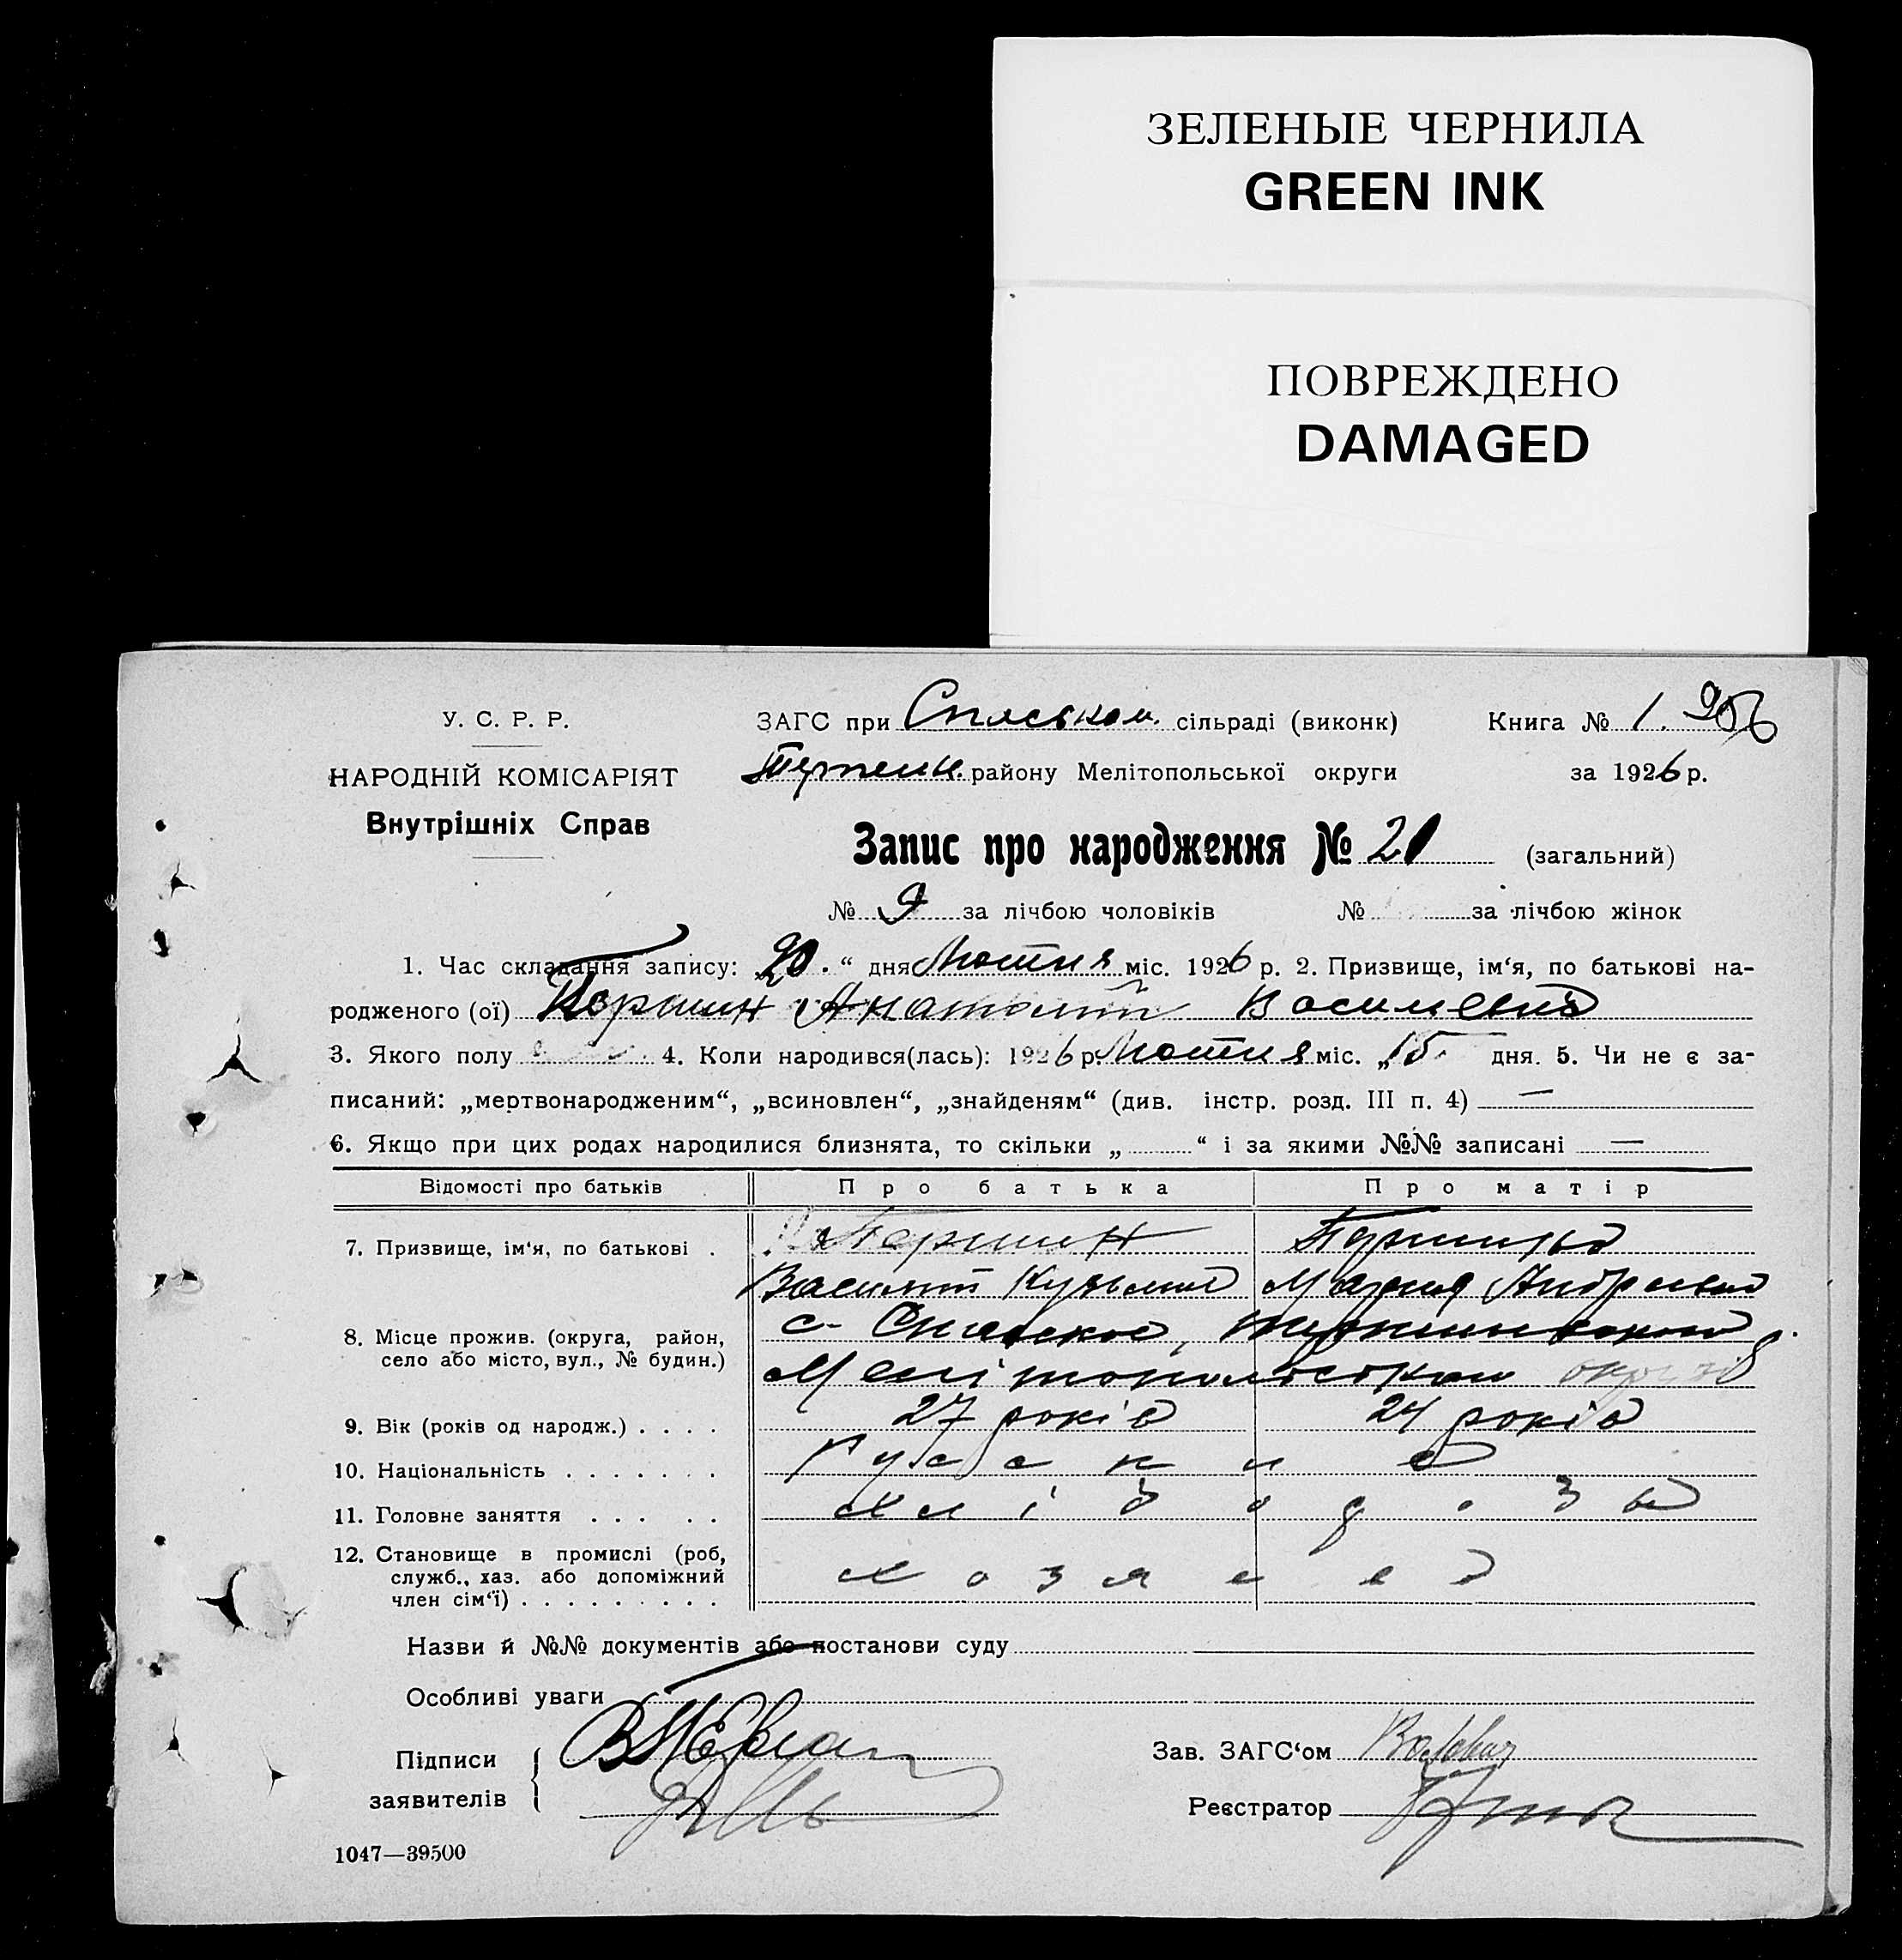 ЗЕЛЕНЫЕ ЧЕРНИЛА
GREEN INK
ПОВРЕЖДЕНО
DAMAGED
У. С. Р. Р.
НАРОДНІЙ КОМІСАРІЯТ
Внутрішніх Справ
ЗАГС при Спаськом. сільраді (виконк) Книга № 1.
Терпени. району Мелітопольської округи за 1926 р.
Запис про народження № 20 (загальний)
№ 9 за лічбою чоловіків № за лічбою жінок
1. Час складання запису: „20.“ дня Лютня міс. 1926 р. 2. Призвище, ім‘я, по батькові на-
родженого (ої) Першин Анатолій Василевич
3. Якого полу 4. Коли народився(лась): 1926 р. Лютня міс. „15 дня. 5. Чи не є за-
писаний: „мертвонародженим“, „всиновлен“, „знайденям“ (див. інстр. розд. III п. 4) —
6. Якщо при цих родах народилися близнята, то скільки „ “ і за якими №№ записані —
Відомості про батьків Про батька Про матір
7. Призвище, ім‘я, по батькові . Першин
Василий Кузьмич Мария
8. Місце прожив. (округа, район,
село або місто, вул., № будин.)
с. Спаское,
Мелітопольськои округів
9. Вік (років од народж.) . . . . 27 років 24 років
10. Національність . . . . . . .
11. Головне заняття . . . . .
12. Становище в промислі (роб,
служб., хаз. або допоміжний
член сім‘ї) . . . . . . . . .
Назви й №№ документів або постанови суду
Особливі уваги
Підписи
заявителів
Зав. ЗАГС‘ом
Реєстратор
1047—39500